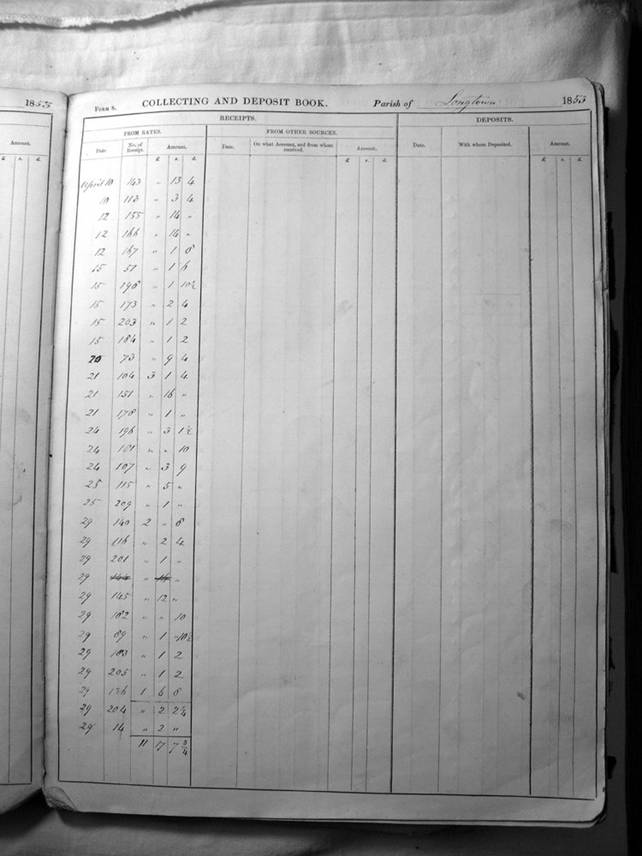 1855
Amount.
£ s. d.
Form 8. COLLECTING AND DEPOSIT BOOK. Parish of Longtown 1855
RECEIPTS. DEPOSITS.
FROM RATES. FROM OTHER SOURCES.
Date No. of Receipt. Amount. Date. On what Account, and from whom received. Amount. Date. With whom Deposited. Amount.
£ s. d. £ s. d. £ s. d.
April 10 143 " 13 4
10 113 " 3 4
12 155 " 14 "
12 166 " 14 "
12 167 " 1 8
15 51 " 1 6
15 198 " 1 10½
15 173 " 2 4
15 203 " 1 2
15 184 " 1 2
20 73 " 9 4
21 104 3 1 4
21 151 " 16 "
21 178 " 1 "
24 196 " 3 1½
24 101 " " 10
24 107 " 3 9
25 115 " 5 "
25 209 " 1 "
29 140 2 " 8
29 116 " 2 4
29 201 " 1 "
29 144 " 14 "
29 145 " 12 "
29 182 " " 10
29 89 " 1
29 183 " 1 2
29 205 " 1 2
29 1 6 8
29 204 " 2 2¼
29 14 " 2 "
11 17 7¾